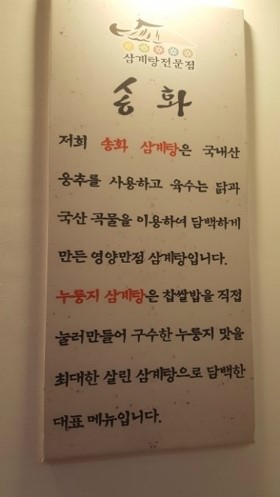 삼계탕전문점
송화
저희 송화 삼계탕은 국내산
웅추를 사용하고 육수는 닭과
국산 곡물을 이용하여 담백하게
만든 영양만점 삼계탕입니다.
누룽지 삼계탕은 찹쌀밥을 직접
눌러만들어 구수한 누룽지 맛을
최대한 살린 삼계탕으로 담백한
대표 메뉴입니다.